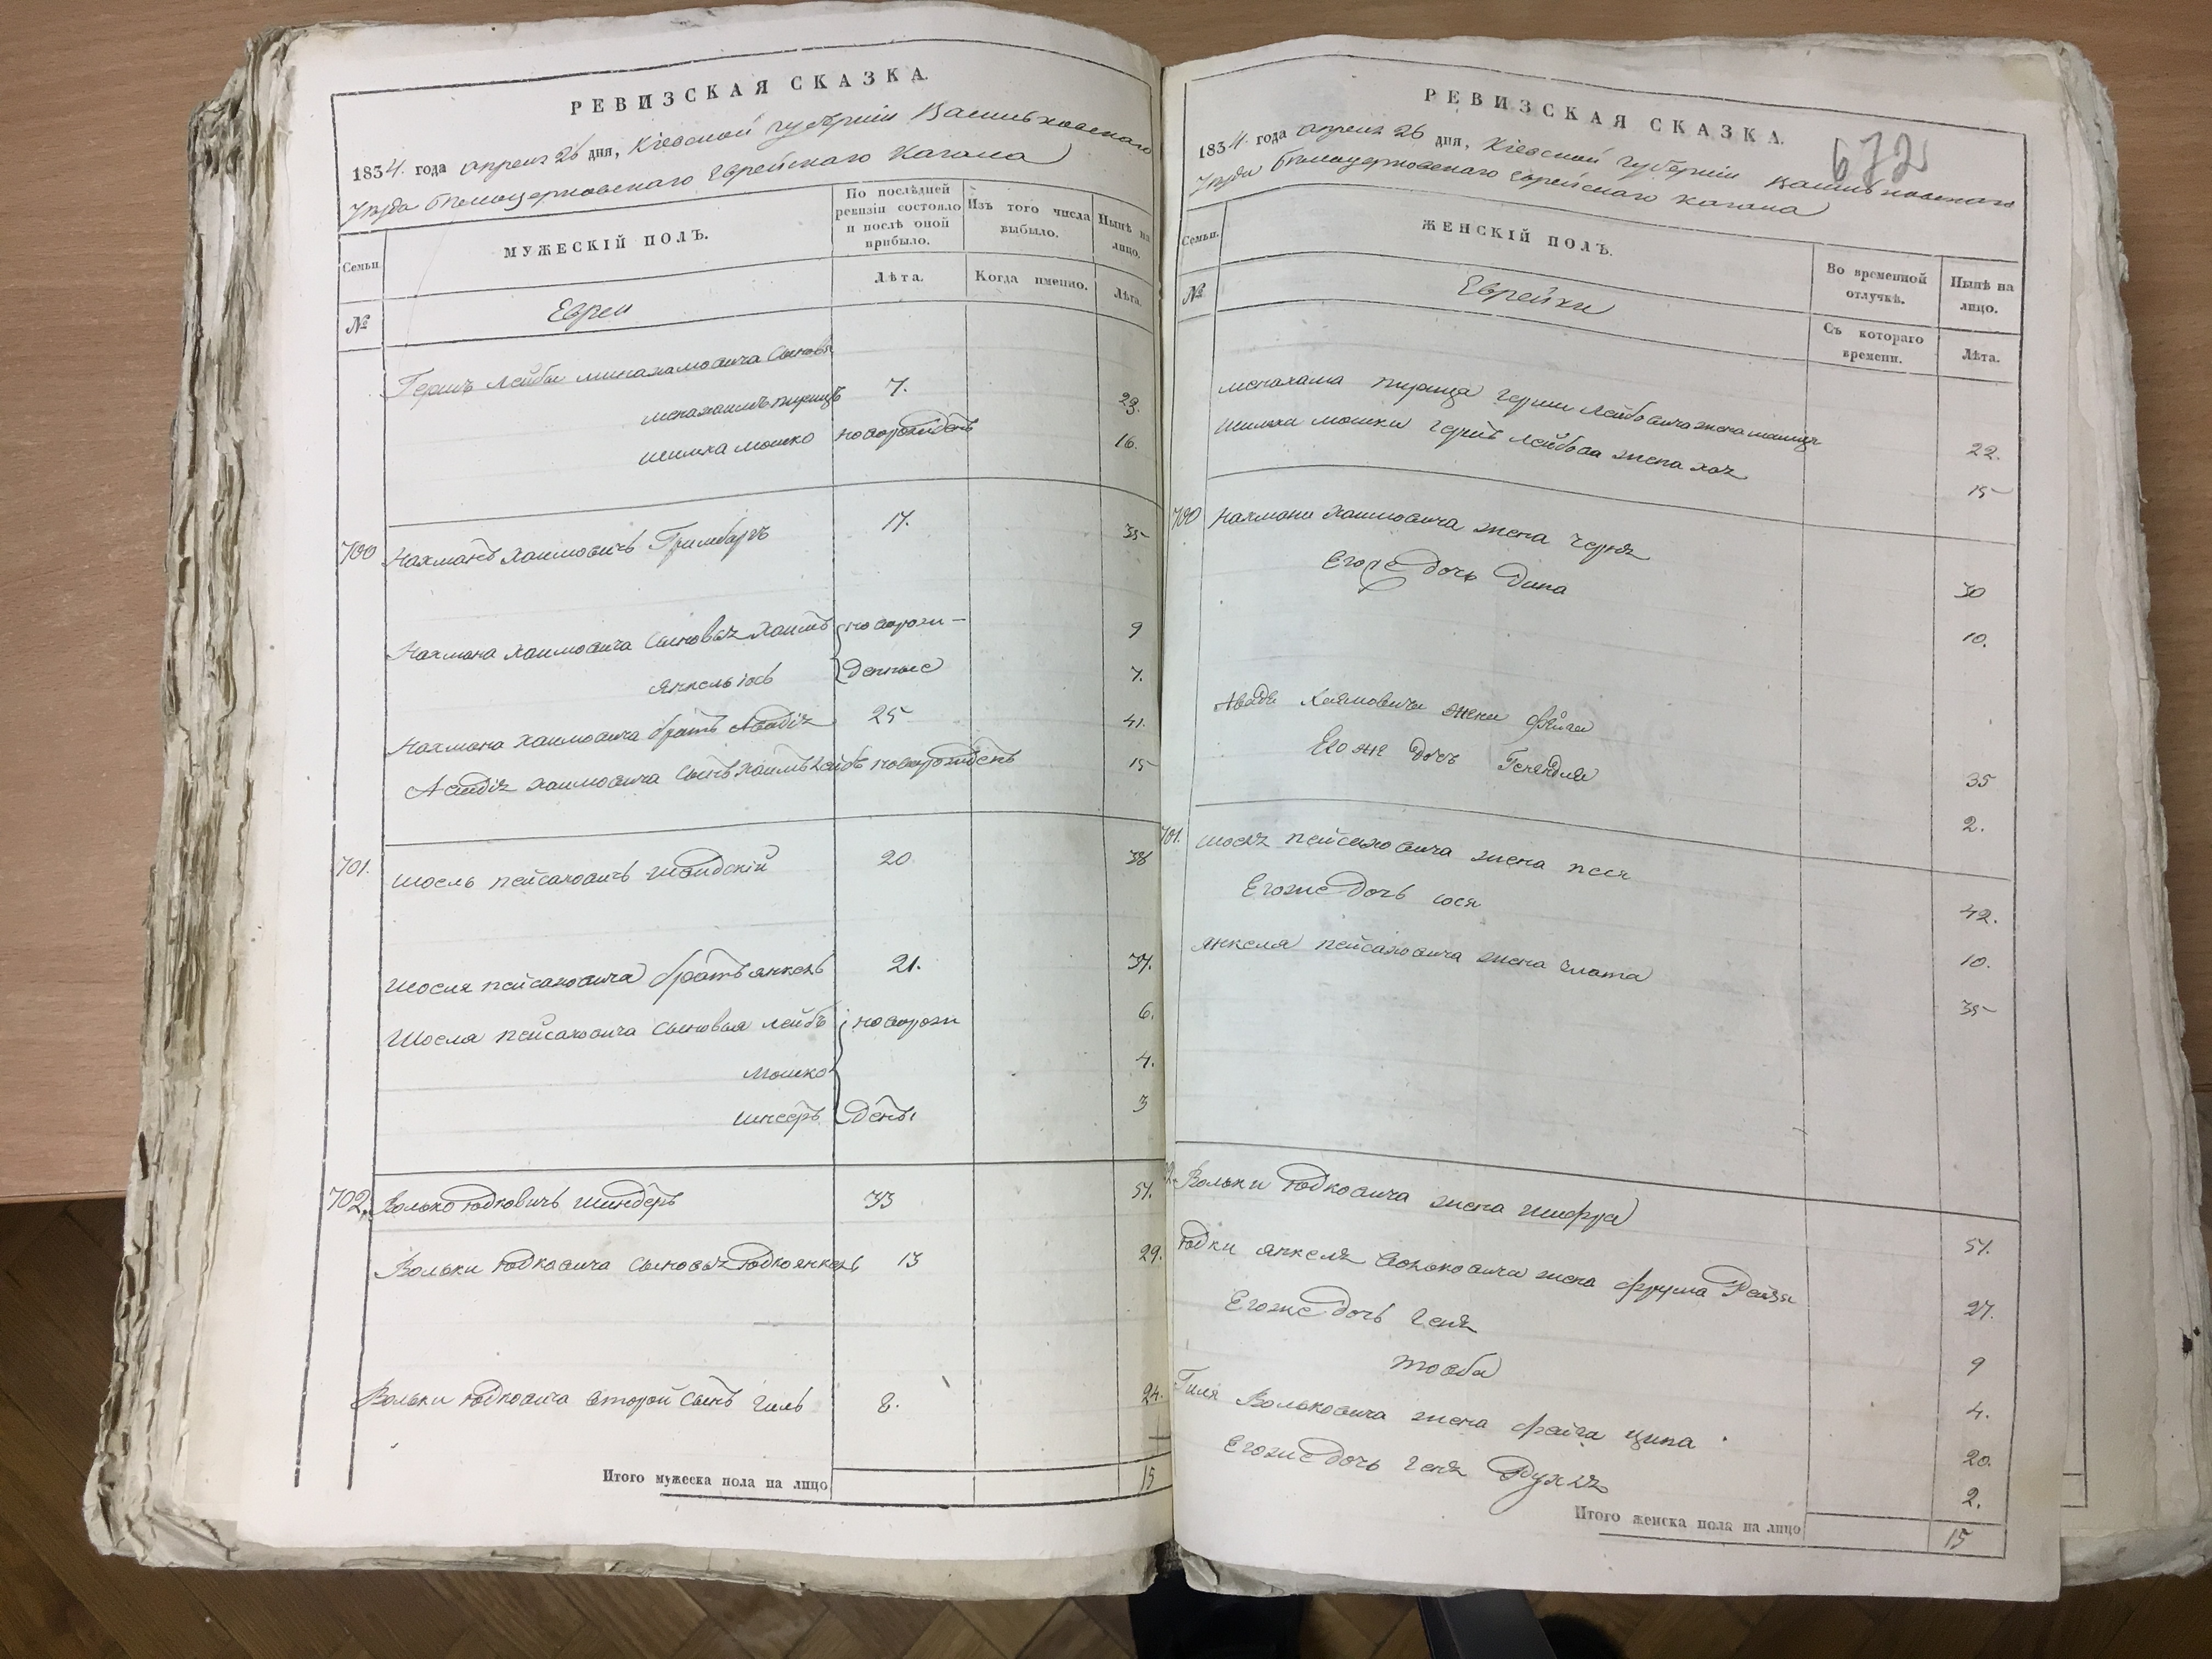 РЕВИЗСКАЯ СКАЗКА.
1834. года апреля 26 дня, Кіевской губерніи Васильковскаго
уѣзда бѣлоцерковскаго Еврейскаго Кагала
Семьи.
МУЖЕСКІЙ ПОЛЪ.
По послѣдней ревизіи состояло и послѣ оной прибыло.
Изъ того числа выбыло.
Нынѣ на лицо.
№
Лѣта.
Когда именно.
Лѣта.
Евреи
Герша Лейбы минахамовича сыновья
менахаимъ 7. 23.
шимха мошко новорожденъ 16.
700 Нахманъ Хаимовичъ Гримбаръ 17. 35
Нахмана Хаимовича сыновья Хаимъ новорож- 9
Янкель іось денные 7.
Нахмана Хаимовича братъ Авадія 25 41.
Авадія Хаимовича сынъ Хаимъ Лейбъ новорожденъ 15
701. Шосель пейсаховичъ 20 38
Шосля пейсаховича братъ янкель 21. 37.
Шосля пейсаховича сыновья лейбъ новорож 6.
мошко 4.
денъ 3
702. Волько юдковичъ шиндеръ 33 51.
Вольки юдковича сыновья юдко янкель 13 29.
Вольки юдковича второй сынъ гиль 8. 24.
Итого мужеска пола на лицо 15
РЕВИЗСКАЯ СКАЗКА.
672
1834. года апреля 26 дня, Кіевской губерніи Васильковскаго
уѣзда бѣлоцерковскаго Еврейскаго кагала
Семьи.
ЖЕНСКІЙ ПОЛЪ.
Во временной отлучкѣ.
Нынѣ на лицо.
№
Съ котораго времени.
Лѣта.
Еврейки
менахама герш лейбовича жена 22.
Шимхи мошки герш лейбова жена хая 15
700 Нахмана Хаимовича жена черня 30
Его же дочь Дина 10.
Авадіи Хаимовича жена фейга 35
Его же дочь Генендля 2.
701. шосля пейсаховича жена песя 42.
Его же дочь сося 10.
янкеля пейсаховича жена злата 35
Вольки юдковича жена шифра 51.
юдки янкеля вольковича жена фрума Рейзя 27.
Его же дочь геня 9
товба 4.
Гиля Вольковича жена фейга ципа 20.
Его же дочь геня 2.
Итого женска пола на лицо 15